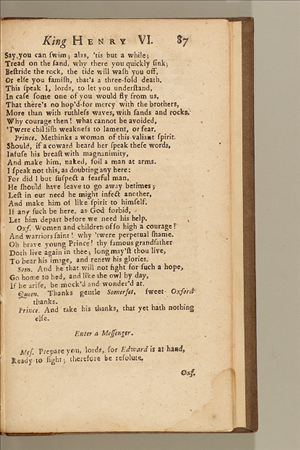 King HENRY VI. 87
Say, you can swim; alas, 'tis but a while;
Tread on the sand, why there you quickly sink;
Bestride the rock, the tide will wash you off,
Or else you famish, that's a three-fold death.
This speak I, lords, to let you understand,
In case some one of you would fly from us,
That there's no hop'd-for mercy with the brothers,
More than with ruthless waves, with sands and rocks.
Why courage then! what cannot be avoided,
'Twere childish weakness to lament, or fear.
Prince. Methinks a woman of this valiant spirit
Should, if a coward heard her speak these words,
Infuse his breast with magnanimity,
And make him, naked, foil a man at arms.
I speak not this, as doubting any here:
For did I but suspect a fearful man,
He should have leave to go away betimes;
Lest in our need he might infect another,
And make him of like spirit to himself.
If any such be here, as God forbid,
Let him depart before we need his help.
Oxf. Women and children of so high a courage!
And warriors faint! why 'twere perpetual shame.
Oh brave young Prince! thy famous grandfather
Doth live again in thee; long may'st thou live,
To bear his image, and renew his glories.
Som. And he that will not fight for such a hope,
Go home to bed, and like the owl by day,
If he arise, be mock'd and wonder'd at.
Queen. Thanks gentle Somerset, sweet Oxford
thanks.
Prince. And take his thanks, that yet hath nothing
else.
Enter a Messenger.
Mes. Prepare you, lords, for Edward is at hand,
Ready to fight; therefore be resolute.
Oxf.